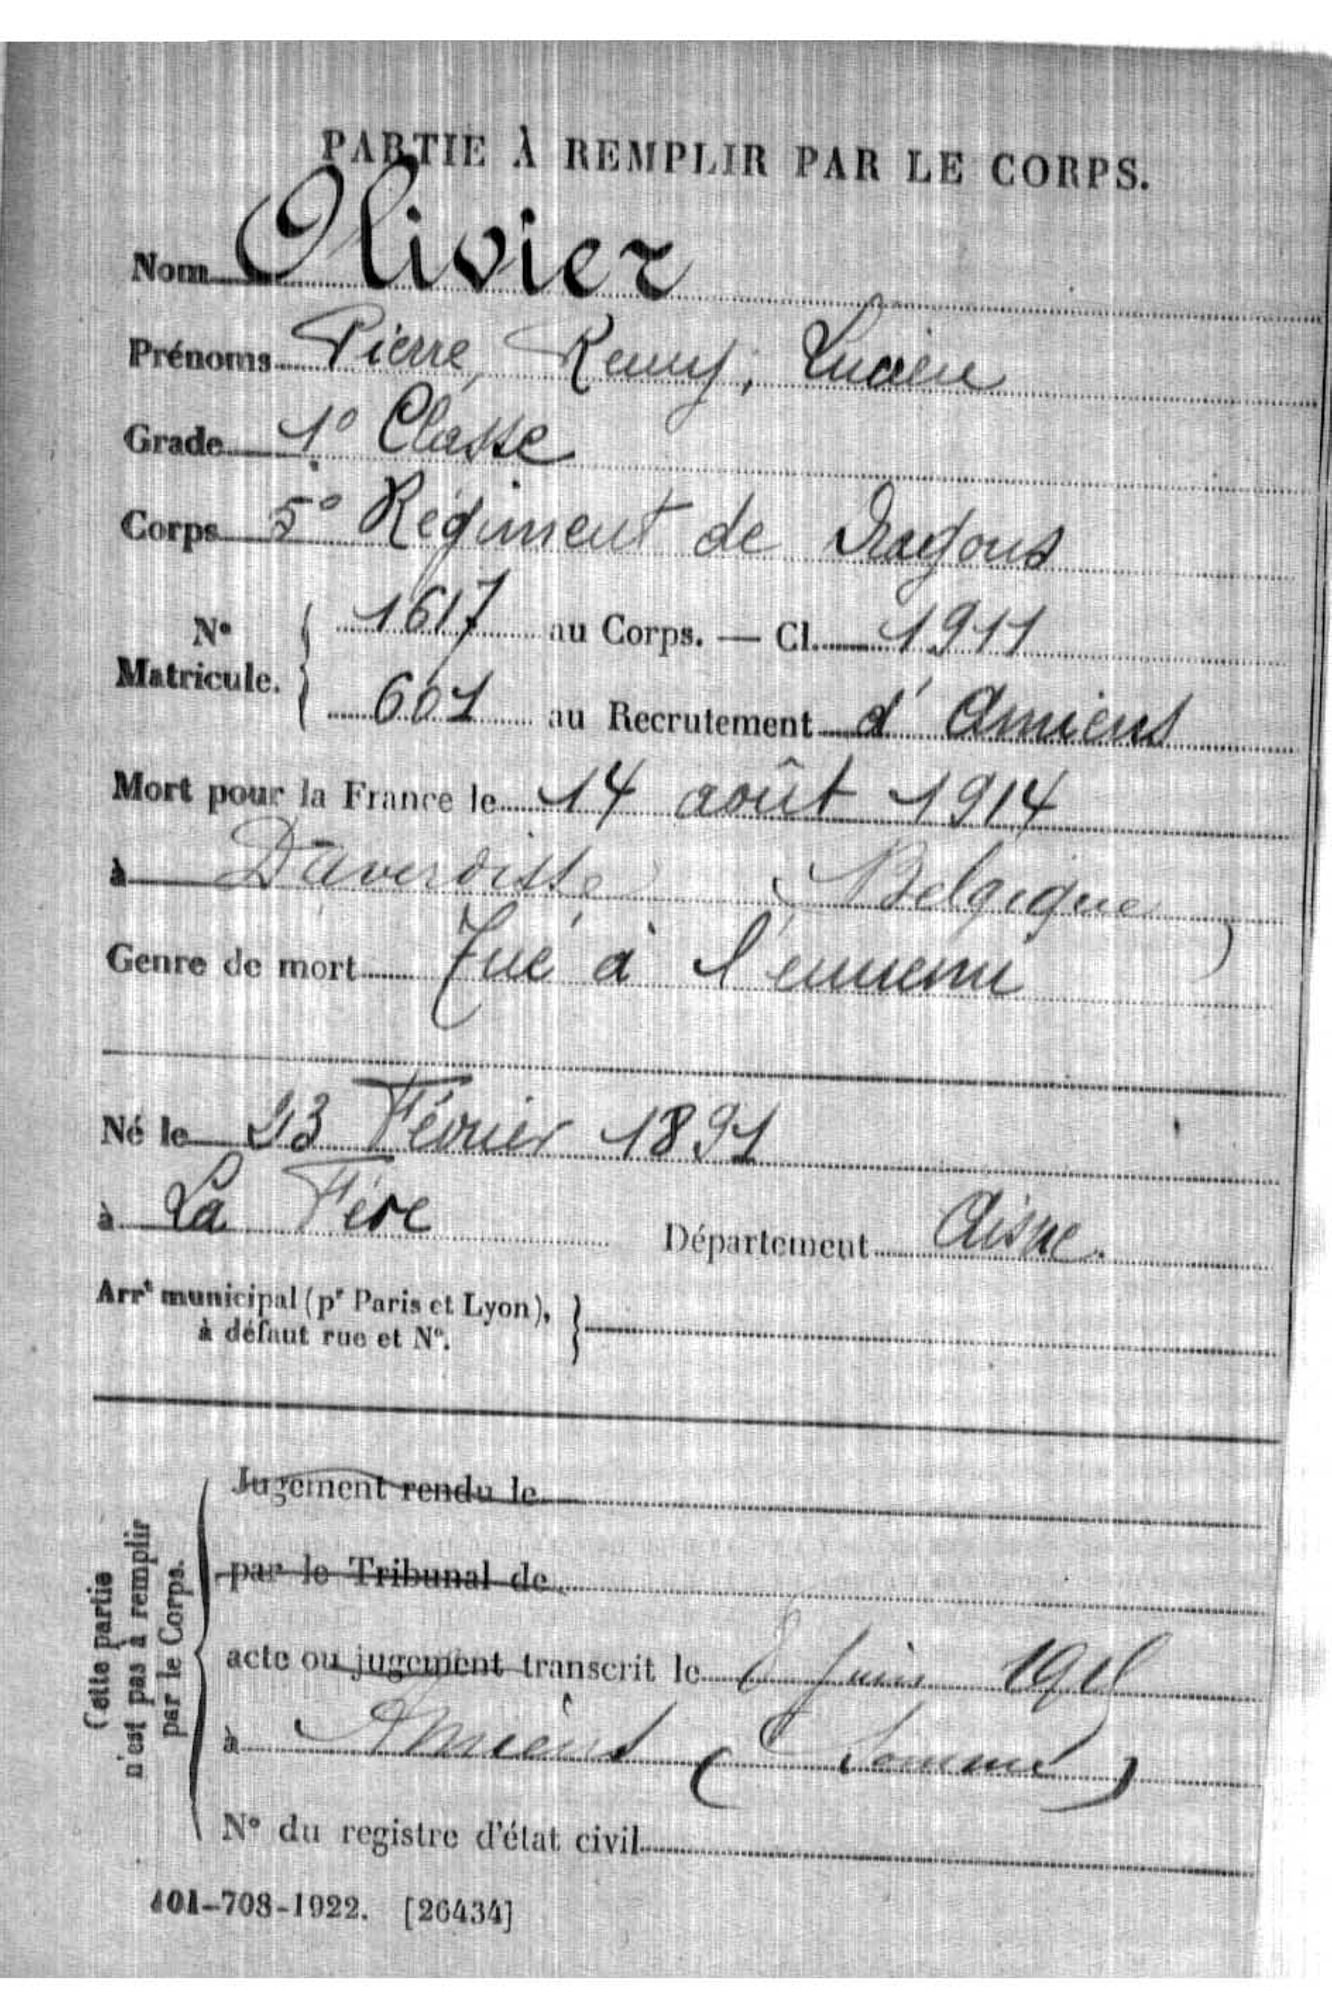 PARTIE À REMPLIR PAR LE CORPS.
Nom Olivier
Prénoms Pierre, Remy, Lucien
Grade 1° Classe
Corps 5° Régiment de Dragons
N° Matricule. 1617 au Corps. — Cl. 1911
601 au Recrutement d'Amiens
Mort pour la France le 14 août 1914
à Daverdisse (Belgique)
Genre de mort Tué à l'ennemi
Né le 23 Février 1891
à La Fère Département Aisne.
Arrt municipal (pr Paris et Lyon),
à défaut rue et N°.
Cette partie
n'est pas à remplir
par le Corps.
Jugement rendu le
par le Tribunal de
acte ou jugement transcrit le 8 Juin
à Amiens (Somme)
N° du registre d'état civil
401-708-1922. [26434]